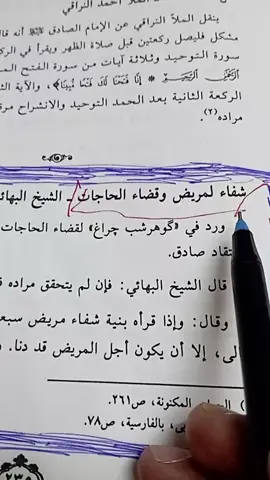 احمد النراقي
ينقل الملّا النراقي عن الإمام الصادق أنه قا
مشكل فليصل ركعتين قبل صلاة الظهر ويقرأ في الرك
سورة التوحيد وثلاثة آيات من سورة الفتح الم
إِنَّا فَتَحْنَا لَكَ فَتْحًا مُّبِينًا﴾، والآية الث
الركعة الثانية بعد الحمد التوحيد والانشراح مرة
مراده(٢).
شفاء لمريض وقضاء الحاجات ـ الشيخ البهائي
ورد في «گوهرشب چراغ» لقضاء الحاجات
تقاد صادق.
قال الشيخ البهائي: فإن لم يتحقق مراده ف
وقال: وإذا قرأه بنية شفاء مريض سبع
لى، إلا أن يكون أجل المريض قد دنا.
المكنونة، ص٢٦١.
بالفارسية، ص٧٨.
٢٣٥